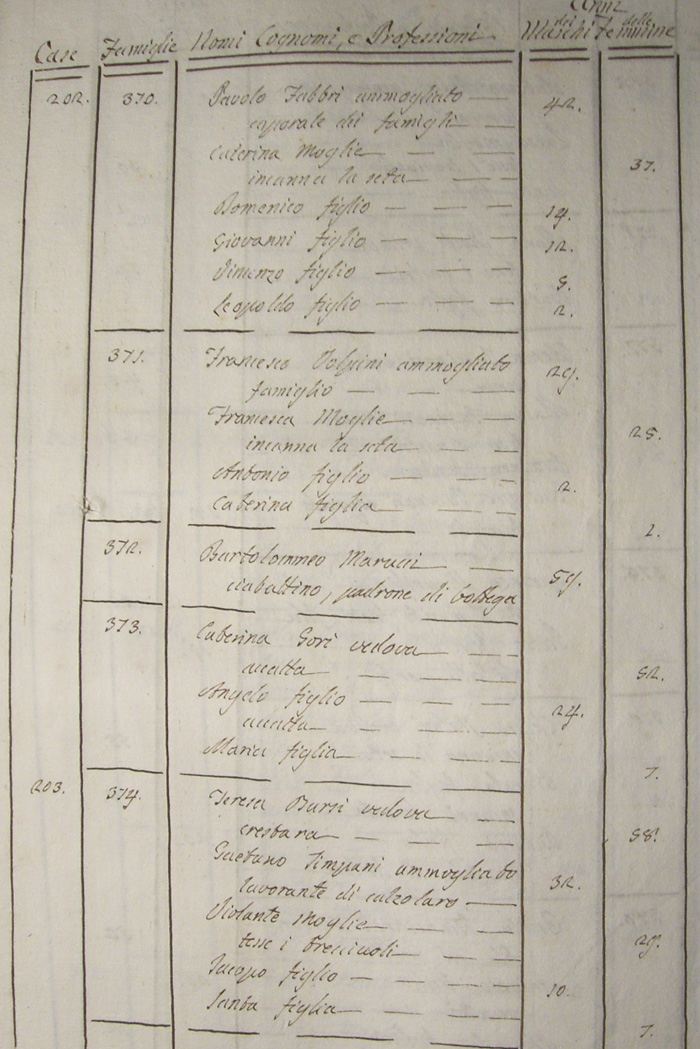 Anni
Case Famiglie Nomi Cognomi, e Professioni dei Maschi delle Femmine
202. 370. Pavolo Fabbri ammogliato 42.
caporale dei famigli
Caterina Moglie 37.
incanna la seta
Domenico figlio 14.
Giovanni figlio 12.
Vincenzo figlio
Leopoldo figlio 2.
371. Francesco Volpini ammogliato 29.
famiglio
Francesca Moglie 25.
incanna la seta
Antonio figlio 2.
Caterina figlia 1.
372. Bartolommeo Marucci 59.
ciabattino, padrone di bottega
373. Caterina Gori vedova 52.
accatta
Angelo figlio 24.
accatta
Maria figlia 7.
203. 374. Teresa Bursi vedova 58.
crestara
Gaetano Timpani ammogliato 32.
lavorante di calzolaro
Violante Moglie 29.
tesse i
Jacopo figlio 10.
Santa figlia 7.